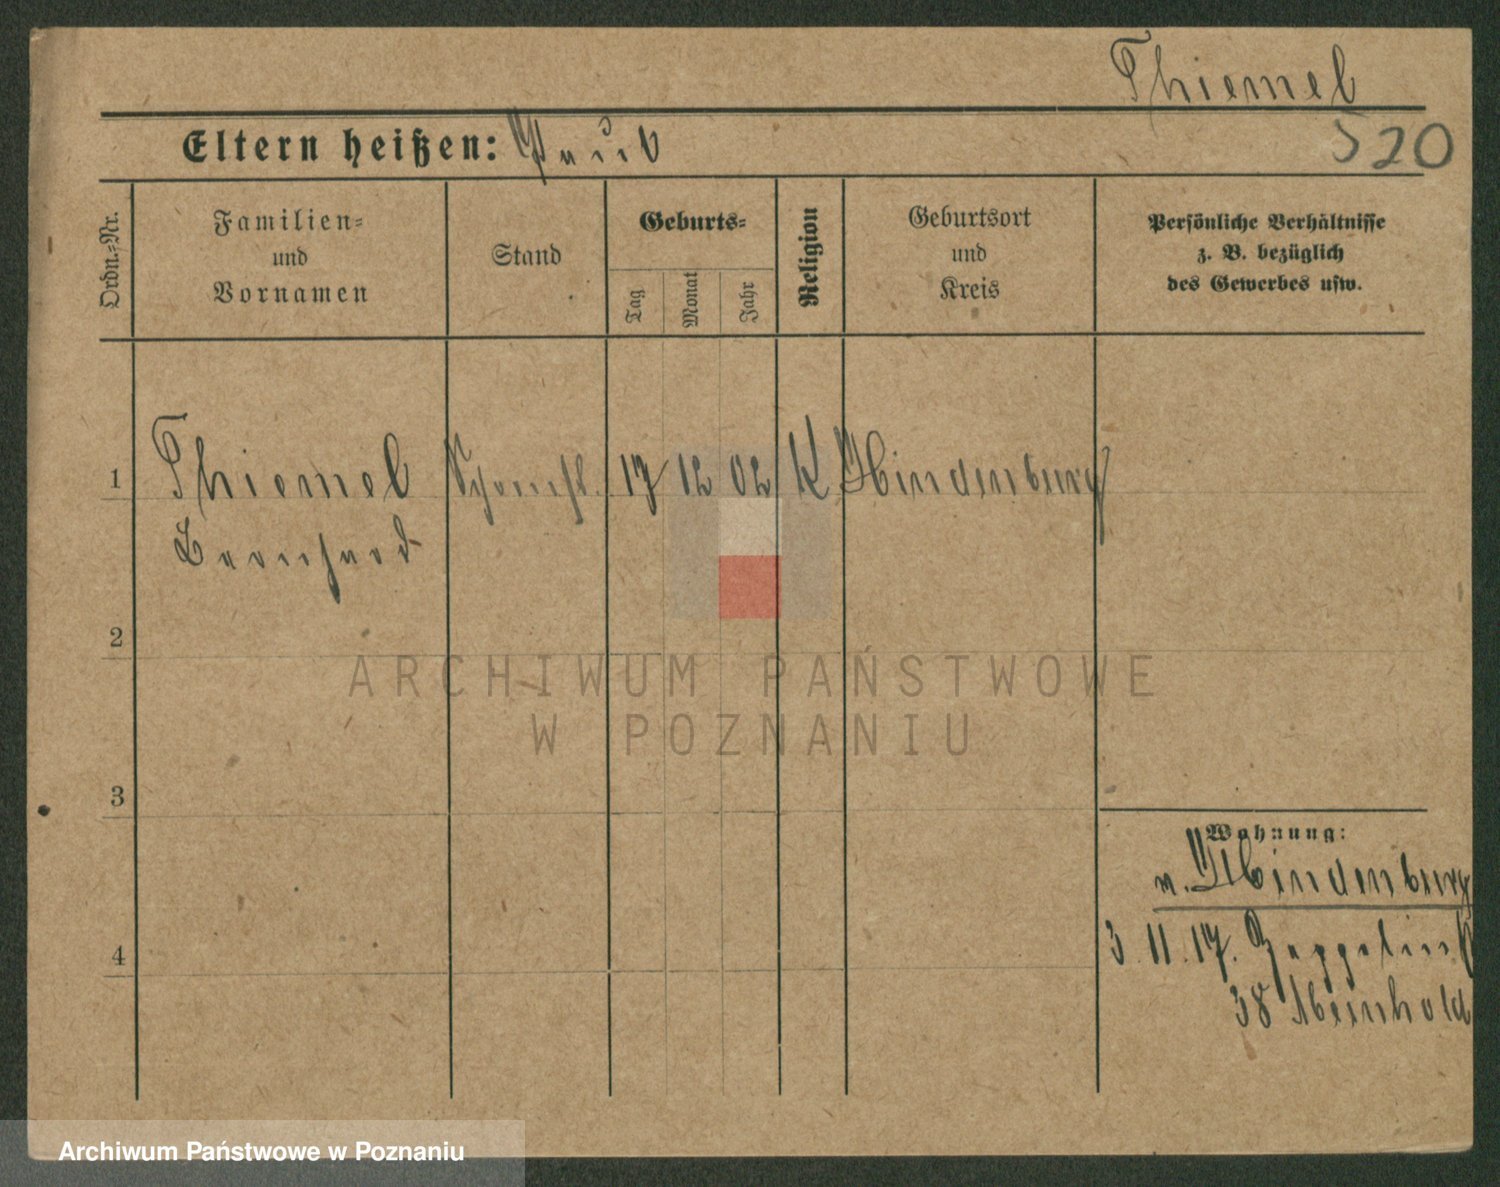 Thiemel
Eltern heißen: Paul
520
Ordn.=Nr.
Familien=
und
Vornamen
Stand
Geburts=
Tag
Monat
Jahr
Religion
Geburtsort
und
Kreis
Persönliche Verhältnisse
z. B. bezüglich
des Gewerbes usw.
1 Thiemel 17 12 02 K Hindenburg
Bernhard
2
ARCHIWUM PAŃSTWOWE
W POZNANIU
3
Wohnung:
v. Hindenburg
4
3 11. 17. Zeppelinst
38 Meinhold
Archiwum Państwowe w Poznaniu